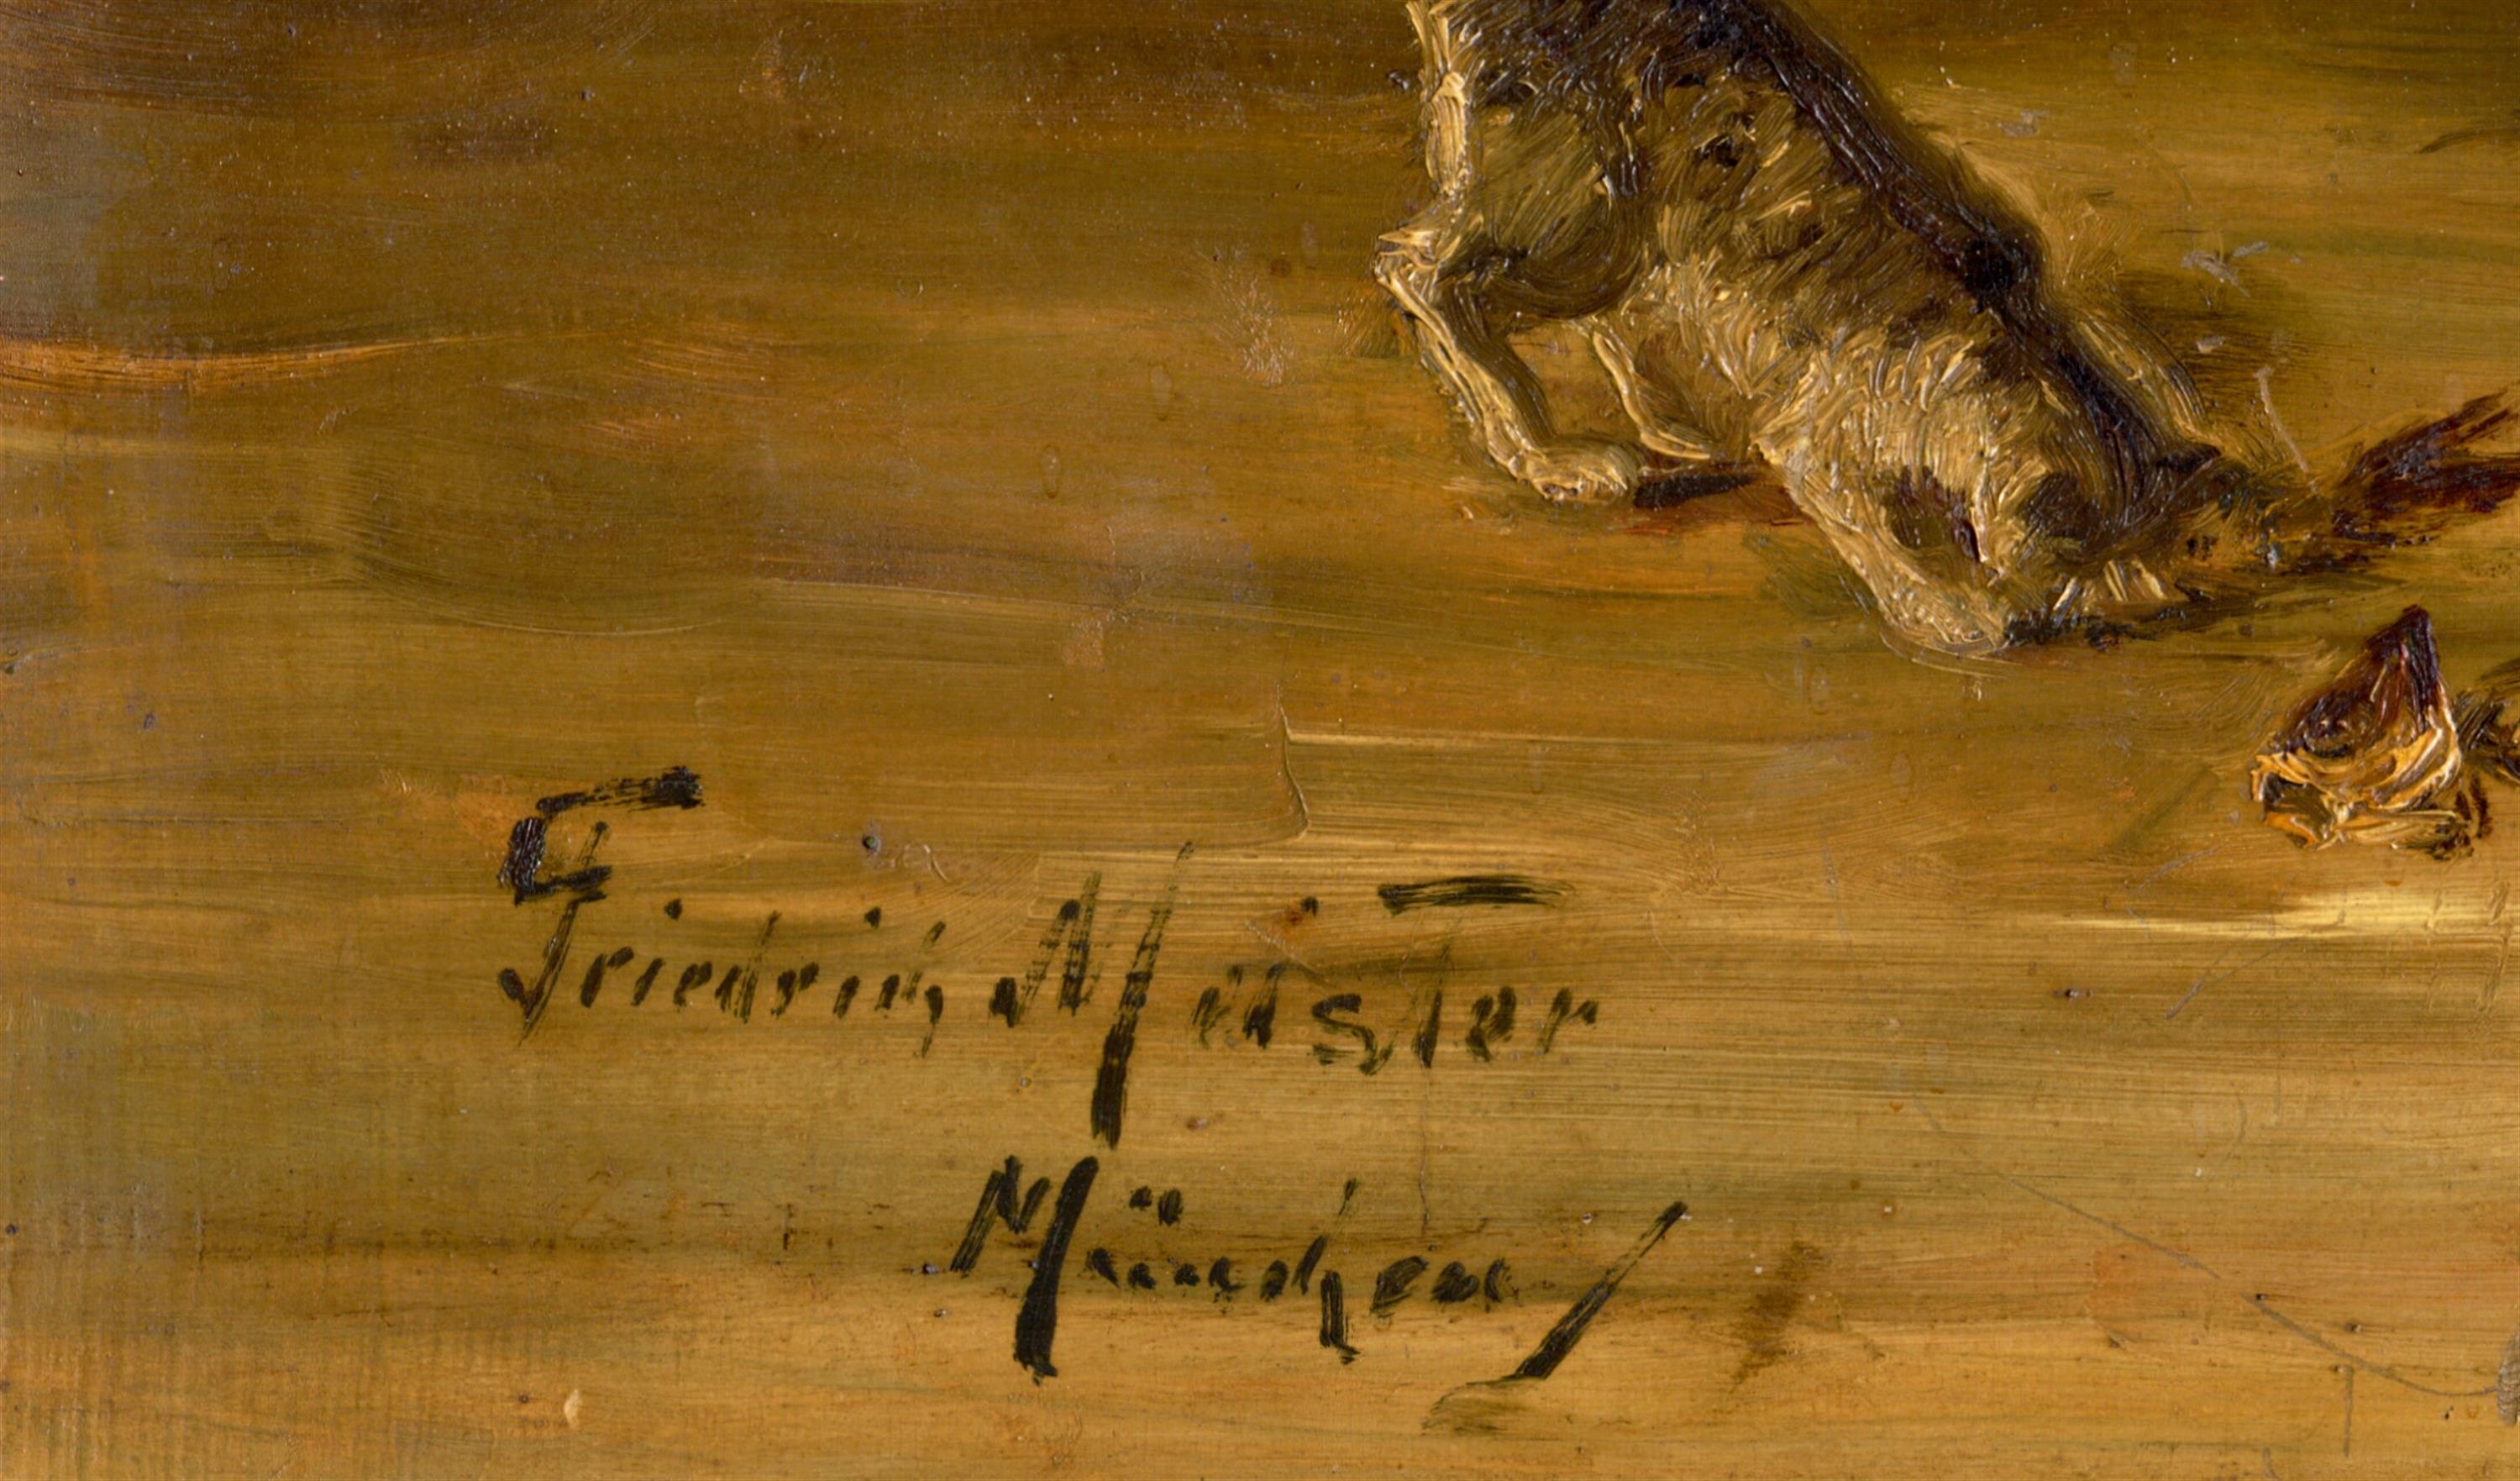 Friedrich Meister
München